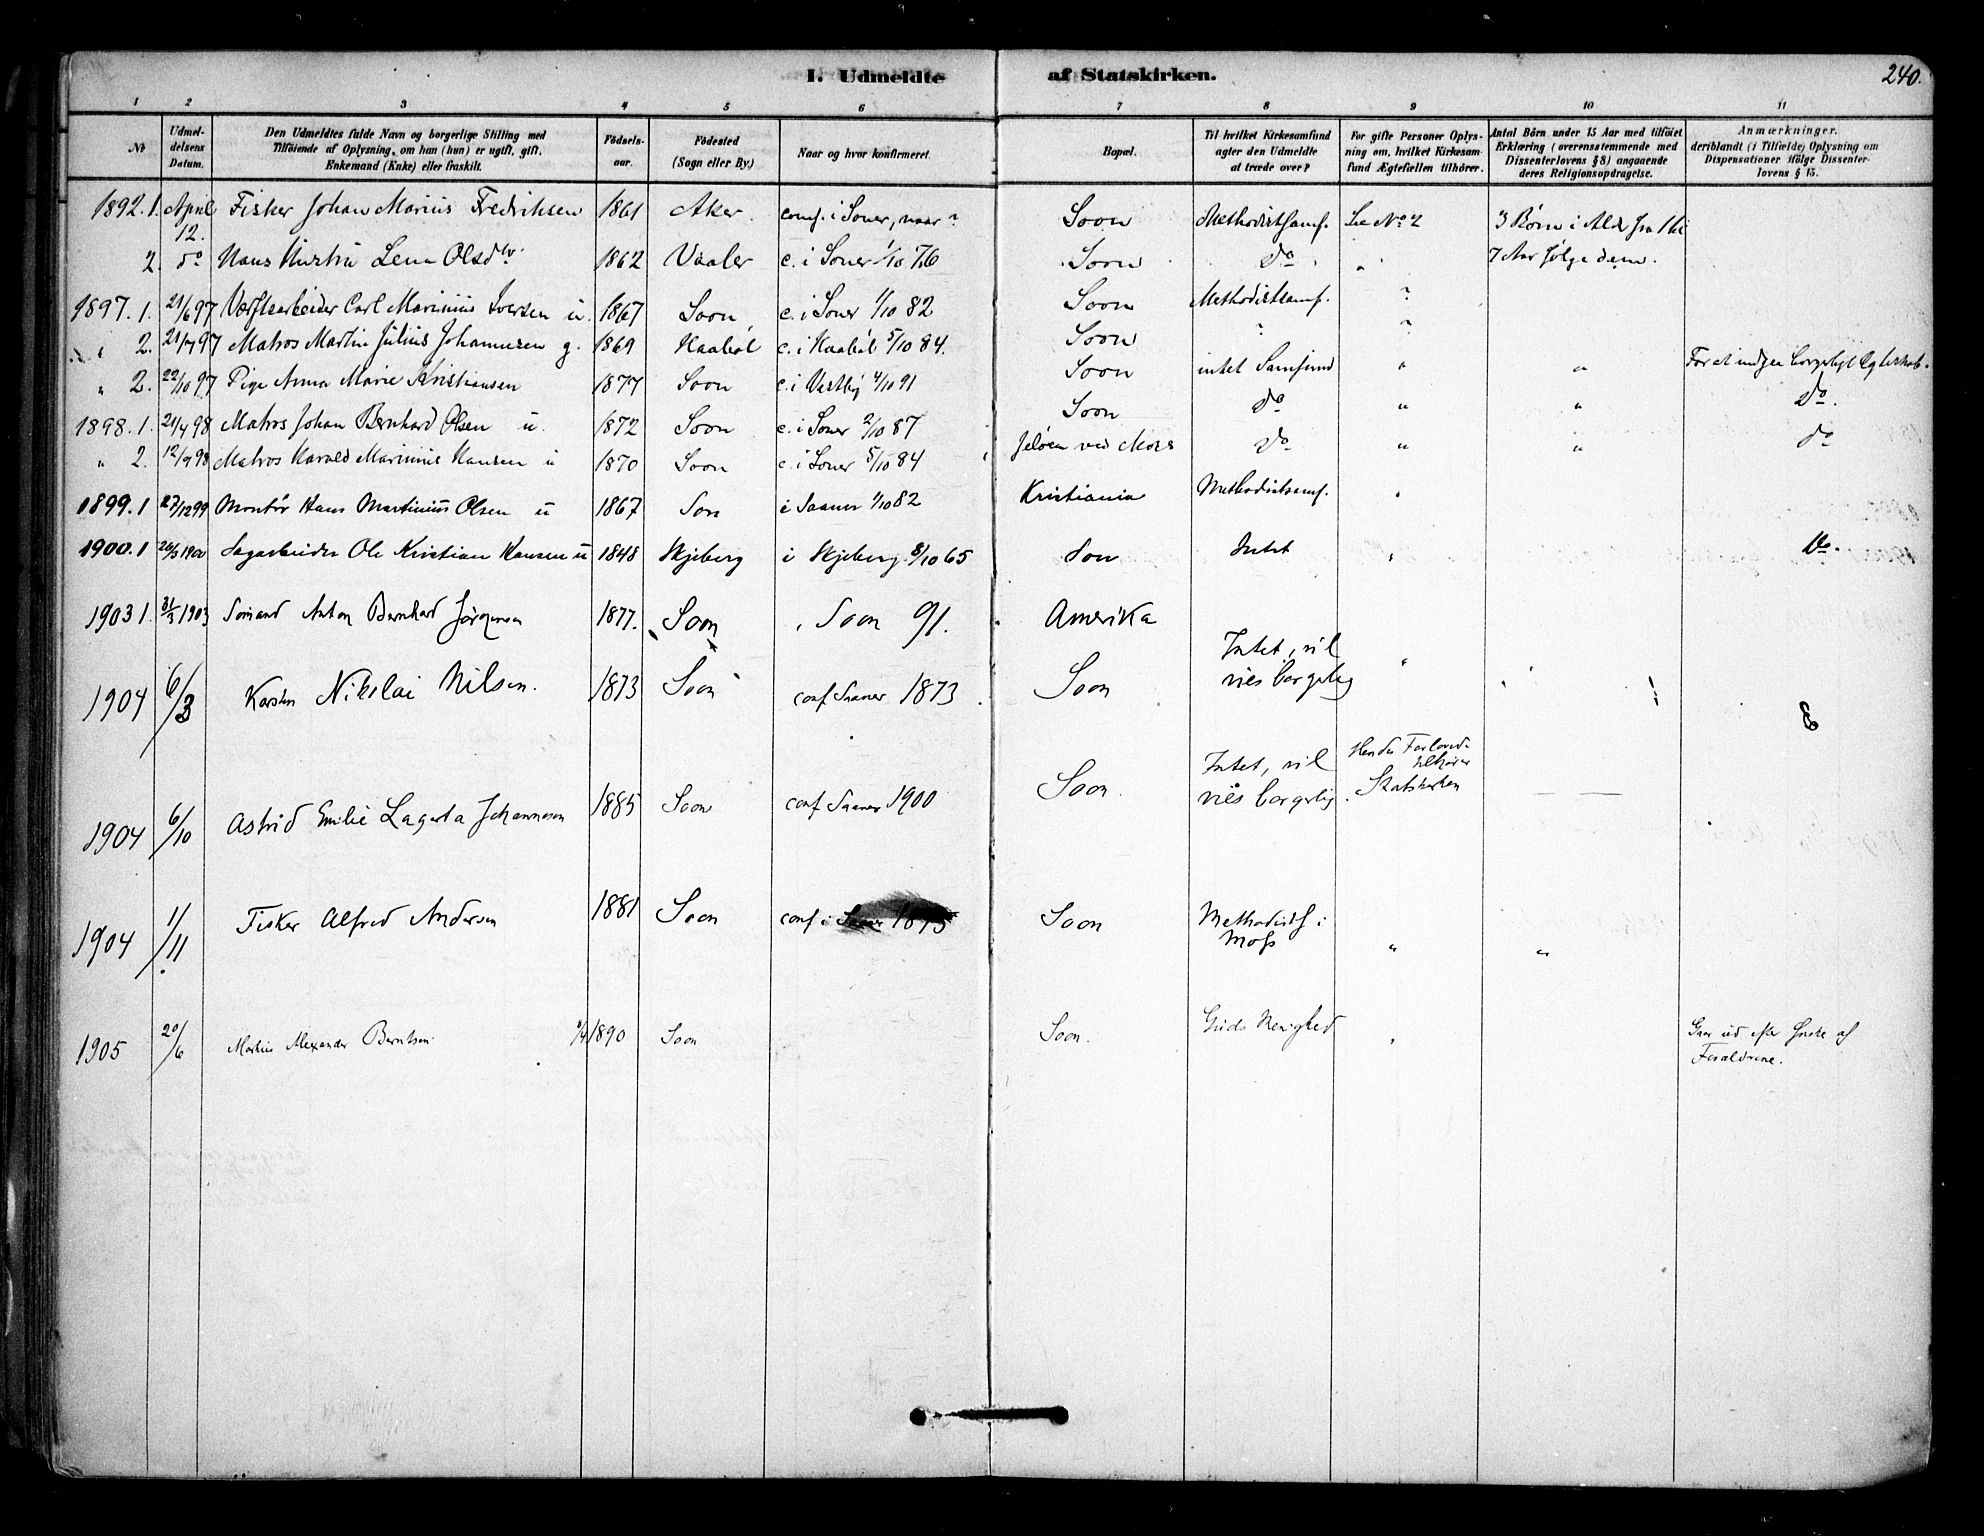 I. Udmeldte af Statskirken.
240.
1 2 3 4 5 6 7 8 9 10 11
No
Udmeldelsens Datum.
Den Udmeldtes fulde Navn og borgerlige Stilling med Tilføiende af Oplysning, om han (hun) er ugift, gift, Enkemand (Enke) eller fraskilt.
Fødselsaar.
Fødested (Sogn eller By.)
Naar og hvor konfirmeret.
Bopæl.
Til hvilket Kirkesamfund agter den Udmeldte at træde over?
For gifte Personer Oplysning om, hvilket Kirkesamfund Ægtefællen tilhører.
Antal Børn under 15 Aar med tilføiet Erklæring (overensstemmende med Dissenterlovens § 8) angaaende deres Religionsopdragelse.
Anmærkninger. deriblandt (i Tilfælde) Oplysning om Dispensationer ifølge Dissenterlovens § 15.
1892. 1. April 12. Fisker Johan Marius Fredriksen 1861 Aker. conf. i Soner, naar? Soon Methodistsamf. Se No 2 3 Børn i Ald. fra 1 til
2. do Hans Hustru Lena Olsdtr 1862 Vaaler c. i Soner 1/10 76 Soon do " 7 Aar følge dem.
1897. 1. 21/6 97 Værftsarbeider Carl Marinius Iversen u. 1867 Soon c. i Soner 1/10 82 Soon Methodistsamf. ?
" 2. 21/7 97 Matros Martin Julius Johannesen g. 1869 Haabøl c. i Haabøl 5/10 84. Soon ? ?
" 2. 22/10 97 Pige Anna Marie Kristiansen 1877 Soon c. i Vestby 4/10 91 Soon intet Samfund " " For at indgaa borgerligt Egteskab.
1898. 1. 21/4 98 Matros Johan Bernhard Olsen u. 1872 Soon c. i Soner 2/10 87 Soon do " " do.
" 2. 12/9 98 Matros Harald Marinius Hansen u 1870 Soon c. i Soner 5/10 84 Jeløen ved Moss do " " do
1899. 1 27/12 99 Montør Hans Martinius Olsen u 1867 Son i Saaner 1/10 82 Kristiania Methodistsamf. "
1900. 1 26/3 1900 Sagarbeider Ole Kristian Hansen u 1848 Skjeberg i Skjeberg 8/10 65 Son Intet " Do.
1903 1. 31/3 1903 Sømand Anton Bernhard Jørgensen 1877. Soon " Soon 91. Amerika
1904 6/3 Karsten Nikolai Nilsen. 1873 Soon conf Saaner 1873 Soon Intet, vil vies borgerlig "
1904 6/10 Astrid Emilie Lagerta Johannesen 1885 Soon conf Saaner 1900 Soon. Intet, vil vies borgerlig. Hendes Forlovede tilhører Statskirken — —
1904 1/11 Fisker Alfred Andersen 1881 Soon conf i Saaner 1895 Soon Methodists i Moss " "
1905 20/6 Martius Alexander Berntsen 1890 Soon Soon. Guds Menighed " Gaar ud efter Ønske af Forældrene.